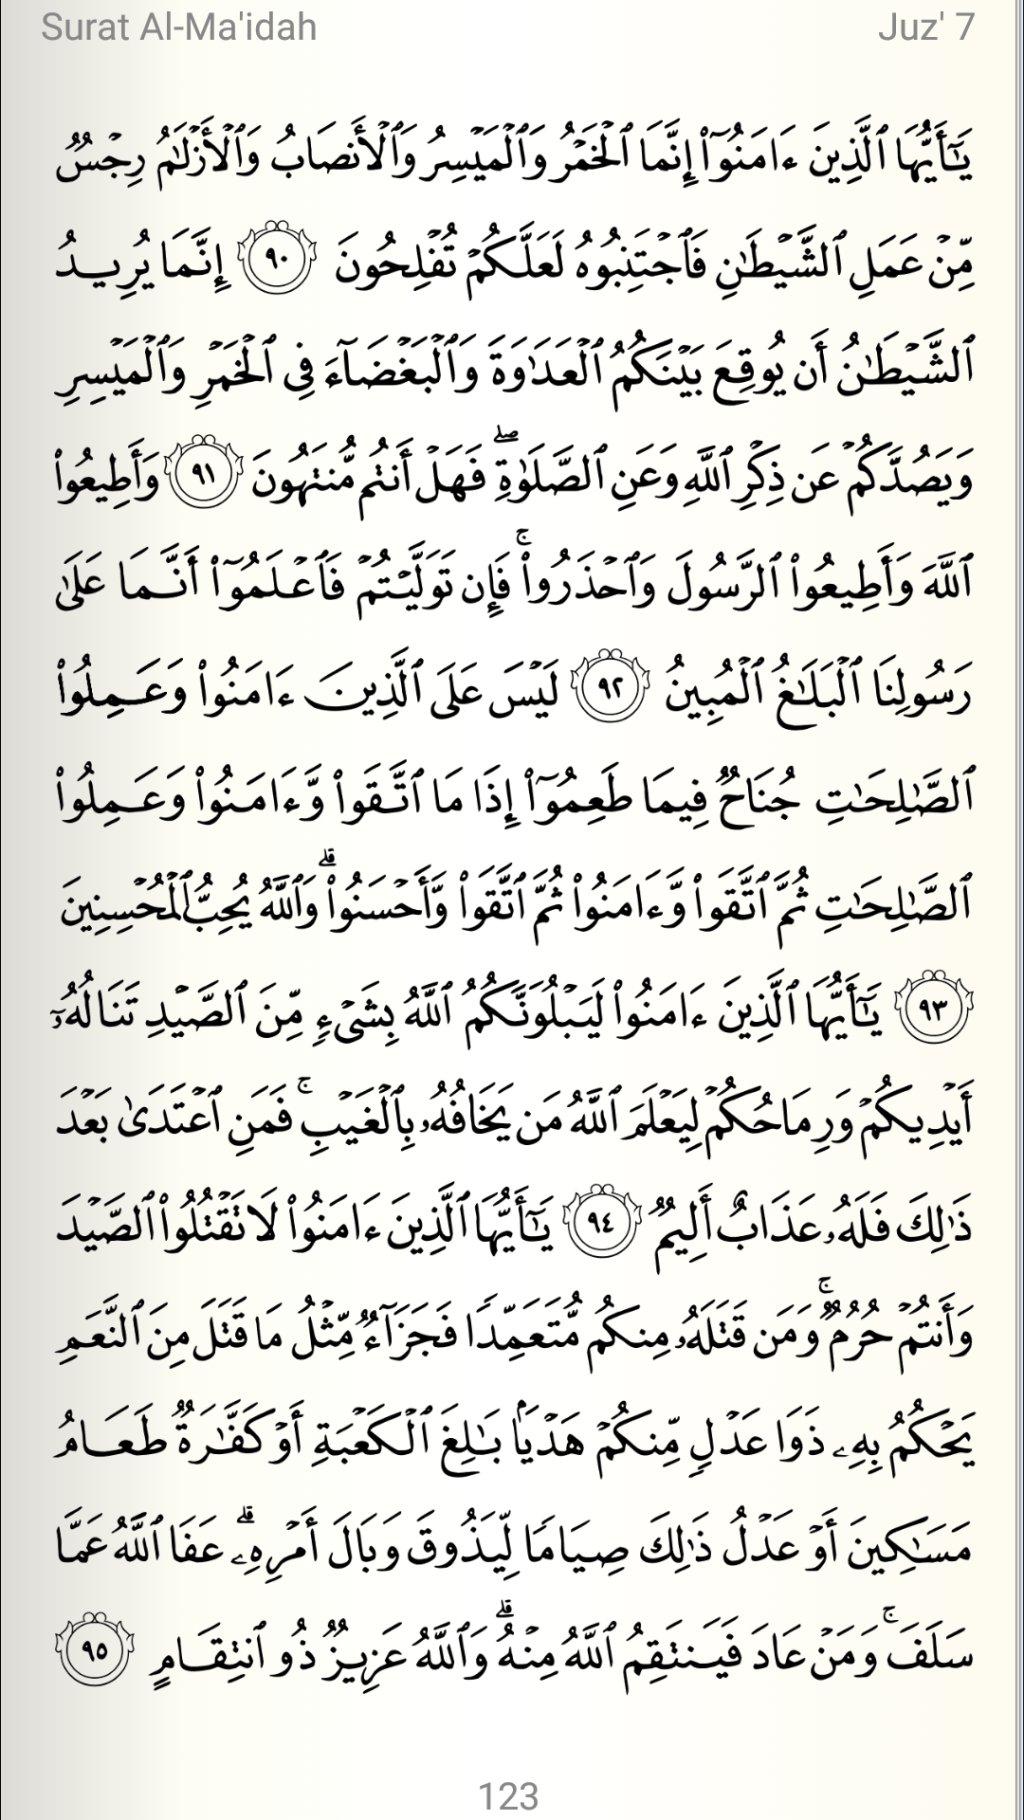 Surat Al-Ma'idah Juz' 7
يَـٰٓأَيُّهَا ٱلَّذِينَ ءَامَنُوٓا۟ إِنَّمَا ٱلْخَمْرُ وَٱلْمَيْسِرُ وَٱلْأَنصَابُ وَٱلْأَزْلَـٰمُ رِجْسٌ
مِّنْ عَمَلِ ٱلشَّيْطَـٰنِ فَٱجْتَنِبُوهُ لَعَلَّكُمْ تُفْلِحُونَ ٩٠ إِنَّمَا يُرِيدُ
ٱلشَّيْطَـٰنُ أَن يُوقِعَ بَيْنَكُمُ ٱلْعَدَٰوَةَ وَٱلْبَغْضَآءَ فِى ٱلْخَمْرِ وَٱلْمَيْسِرِ
وَيَصُدَّكُمْ عَن ذِكْرِ ٱللَّهِ وَعَنِ ٱلصَّلَوٰةِ ۖ فَهَلْ أَنتُم مُّنتَهُونَ ٩١ وَأَطِيعُوا۟
ٱللَّهَ وَأَطِيعُوا۟ ٱلرَّسُولَ وَٱحْذَرُوا۟ ۚ فَإِن تَوَلَّيْتُمْ فَٱعْلَمُوٓا۟ أَنَّمَا عَلَىٰ
رَسُولِنَا ٱلْبَلَـٰغُ ٱلْمُبِينُ ٩٢ لَيْسَ عَلَى ٱلَّذِينَ ءَامَنُوا۟ وَعَمِلُوا۟
ٱلصَّـٰلِحَـٰتِ جُنَاحٌ فِيمَا طَعِمُوٓا۟ إِذَا مَا ٱتَّقَوا۟ وَّءَامَنُوا۟ وَعَمِلُوا۟
ٱلصَّـٰلِحَـٰتِ ثُمَّ ٱتَّقَوا۟ وَّءَامَنُوا۟ ثُمَّ ٱتَّقَوا۟ وَّأَحْسَنُوا۟ ۗ وَٱللَّهُ يُحِبُّ ٱلْمُحْسِنِينَ
٩٣ يَـٰٓأَيُّهَا ٱلَّذِينَ ءَامَنُوا۟ لَيَبْلُوَنَّكُمُ ٱللَّهُ بِشَىْءٍ مِّنَ ٱلصَّيْدِ تَنَالُهُۥٓ
أَيْدِيكُمْ وَرِمَاحُكُمْ لِيَعْلَمَ ٱللَّهُ مَن يَخَافُهُۥ بِٱلْغَيْبِ ۚ فَمَنِ ٱعْتَدَىٰ بَعْدَ
ذَٰلِكَ فَلَهُۥ عَذَابٌ أَلِيمٌ ٩٤ يَـٰٓأَيُّهَا ٱلَّذِينَ ءَامَنُوا۟ لَا تَقْتُلُوا۟ ٱلصَّيْدَ
وَأَنتُمْ حُرُمٌ ۚ وَمَن قَتَلَهُۥ مِنكُم مُّتَعَمِّدًا فَجَزَآءٌ مِّثْلُ مَا قَتَلَ مِنَ ٱلنَّعَمِ
يَحْكُمُ بِهِۦ ذَوَا عَدْلٍ مِّنكُمْ هَدْيًۢا بَـٰلِغَ ٱلْكَعْبَةِ أَوْ كَفَّـٰرَةٌ طَعَامُ
مَسَـٰكِينَ أَوْ عَدْلُ ذَٰلِكَ صِيَامًا لِّيَذُوقَ وَبَالَ أَمْرِهِۦ ۗ عَفَا ٱللَّهُ عَمَّا
سَلَفَ ۚ وَمَنْ عَادَ فَيَنتَقِمُ ٱللَّهُ مِنْهُ ۗ وَٱللَّهُ عَزِيزٌ ذُو ٱنتِقَامٍ ٩٥
123